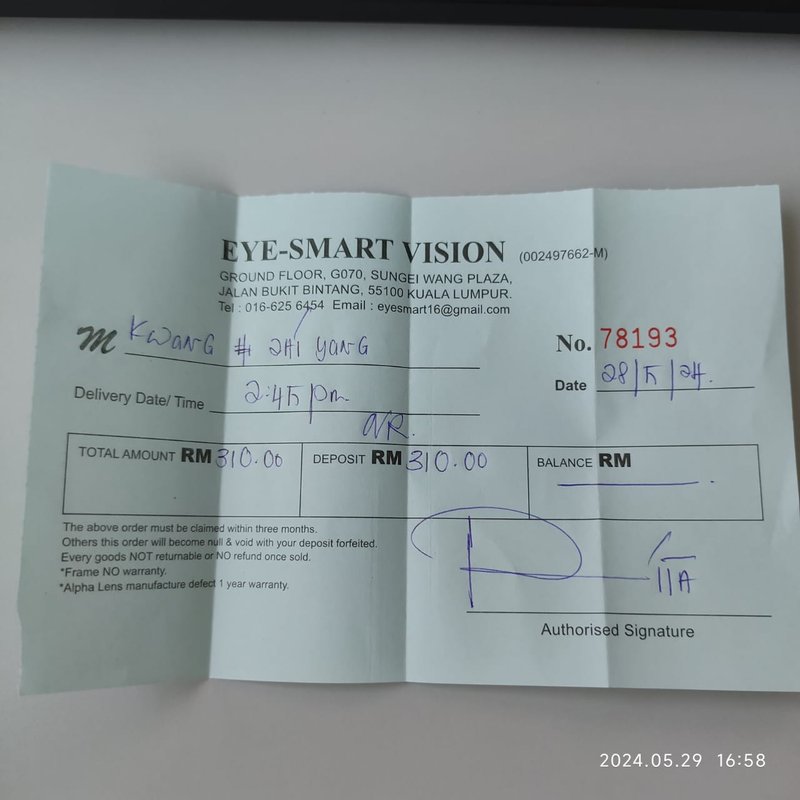 EYE-SMART VISION (002497662-M)
GROUND FLOOR, G070, SUNGEI WANG PLAZA,
JALAN BUKIT BINTANG, 55100 KUALA LUMPUR.
Tel : 016-625 6454 Email : eyesmart16@gmail.com
M KWANG ZHI YANG
No. 78193
Delivery Date/ Time 2:45 pm
Date 28/5/24.
TOTAL AMOUNT RM 310.00 DEPOSIT RM 310.00 BALANCE RM
The above order must be claimed within three months.
Others this order will become null & void with your deposit forfeited.
Every goods NOT returnable or NO refund once sold.
*Frame NO warranty.
*Alpha Lens manufacture defect 1 year warranty.
Authorised Signature
2024.05.29 16:58